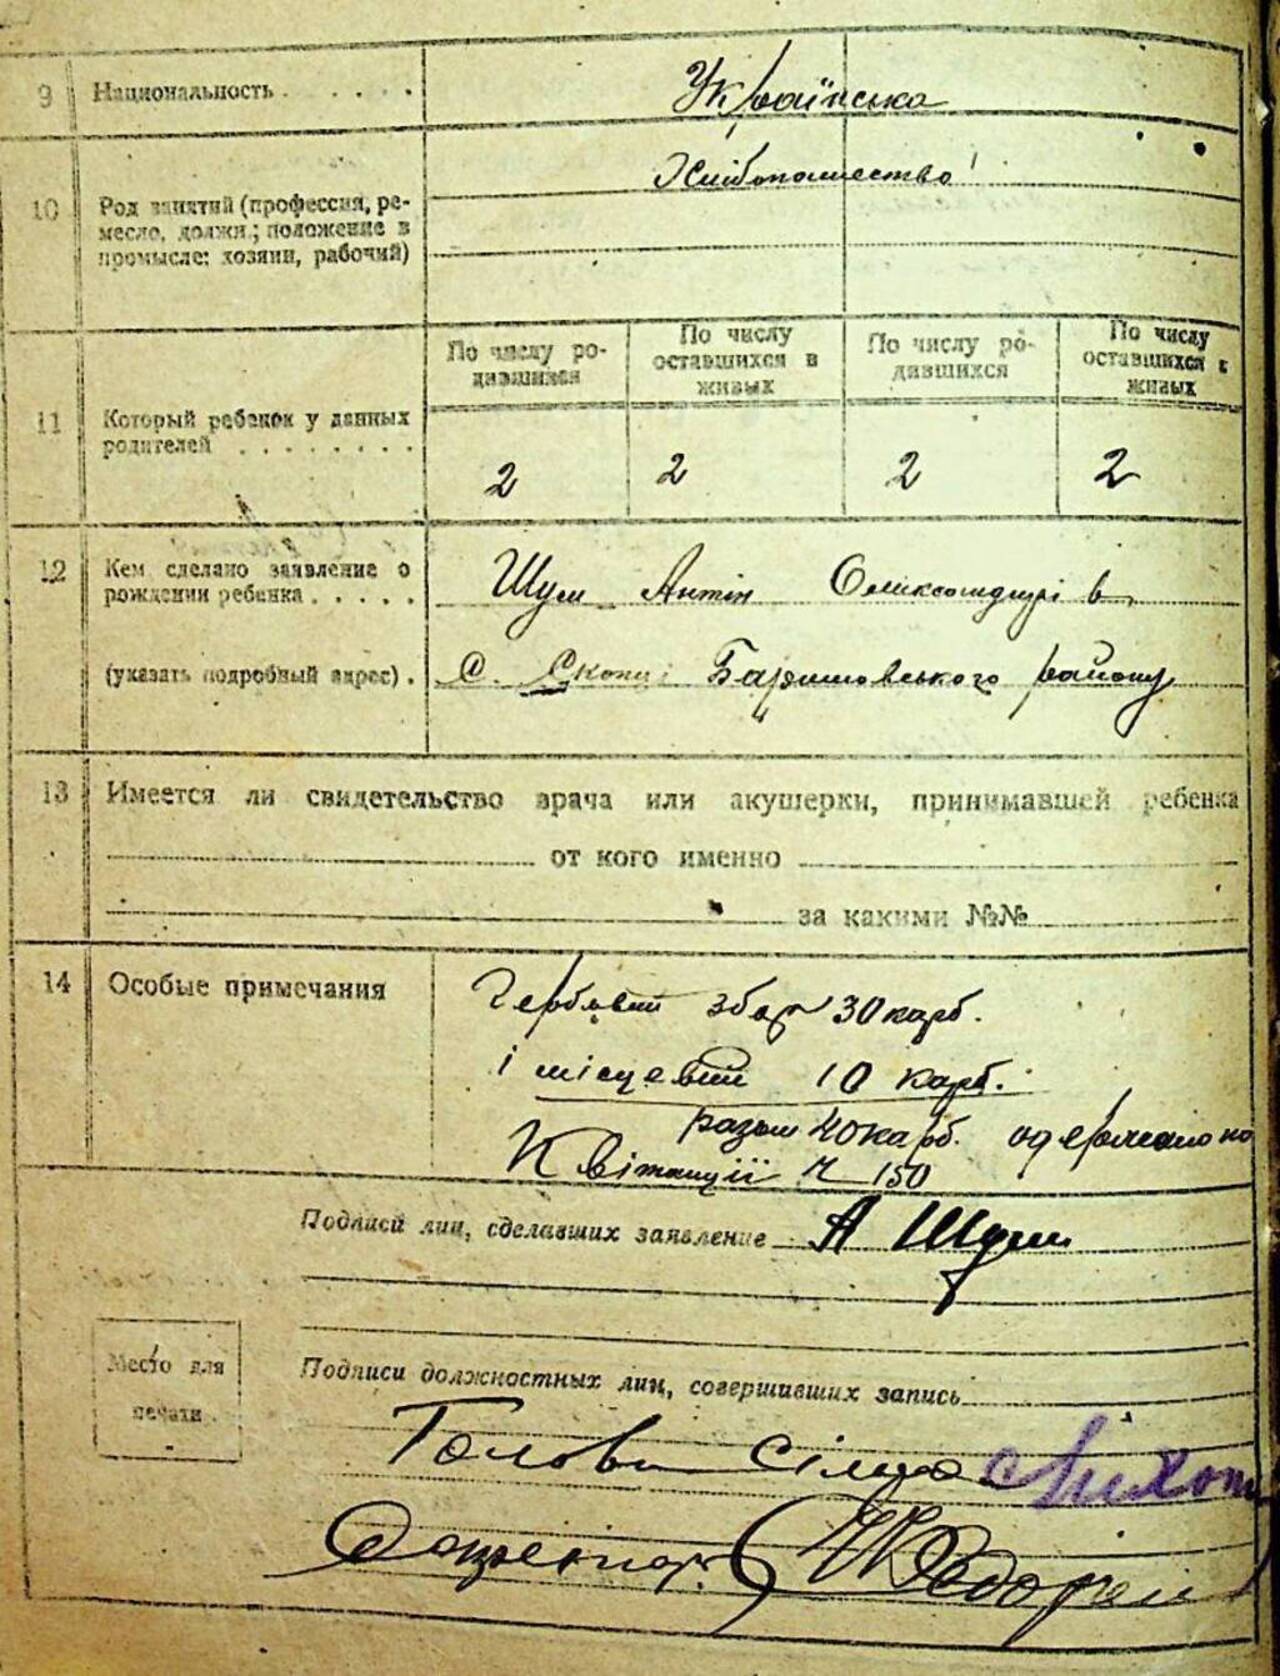 9 Национальность Українська
Хлібопашество
10 Род занятий (профессия, ре-
месло, должн.; положение в
промысле: хозяин, рабочий)
По числу ро-
дившихся
По числу
оставшихся в
живых
По числу ро-
дившихся
По числу
оставшихся в
живых
11 Который ребенок у данных
родителей
2 2 2 2
12 Кем сделано заявление о
рождении ребенка
Шум Антін
(указать подробный адрес)
с. Скопці Баришовського району
13 Имеется ли свидетельство врача или акушерки, принимавшей ребенка
от кого именно
за какими №№
14 Особые примечания
Гербовий збор 30 карб.
і місцевий 10 карб.
разом 40 карб. одержано по
Квітанції № 150
Подписи лиц, сделавших заявление А Шум
Место для
печати
Подписи должностных лиц, совершивших запись
Голова
Секретар